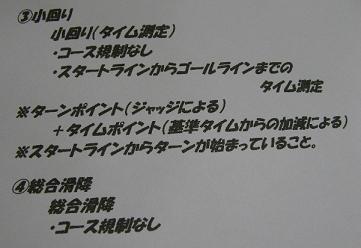 ③小回り
小回り(タイム測定)
・コース規制なし
・スタートラインからゴールラインまでの
タイム測定
※ターンポイント(ジャッジによる)
+タイムポイント(基準タイムからの加減による)
※スタートラインからターンが始まっていること。
④総合滑降
総合滑降
・コース規制なし